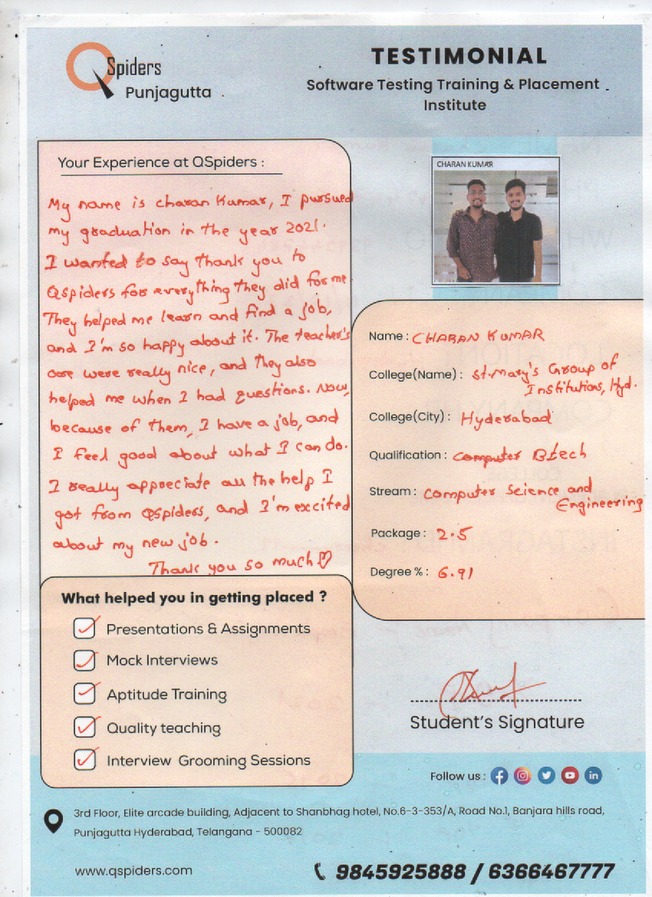 QSpiders
Punjagutta
TESTIMONIAL
Software Testing Training & Placement
Institute
Your Experience at QSpiders :
My name is charan Kumar, I pursued
my graduation in the year 2021.
I wanted to say thank you to
Qspiders for everything they did for me
They helped me learn and find a job,
and I'm so happy about it. The teacher's
were really nice, and they also
helped me when I had questions. Now,
because of them, I have a job, and
I feel good about what I can do.
I really appreciate all the help I
got from Qspiders, and I'm excited
about my new job.
Thank you so much
CHARAN KUMAR
Name : CHARAN KUMAR
College(Name) : St.Mary's Group of
Institutions, Hyd.
College(City) : Hyderabad
Qualification : Computer Btech
Stream : Computer Science and
Engineering
Package : 2.5
Degree % : 6.91
What helped you in getting placed ?
Presentations & Assignments
Mock Interviews
Aptitude Training
Quality teaching
Interview Grooming Sessions
Student's Signature
Follow us :
3rd Floor, Elite arcade building, Adjacent to Shanbhag hotel, No.6-3-353/A, Road No.1, Banjara hills road,
Punjagutta Hyderabad, Telangana - 500082
www.qspiders.com
9845925888 / 6366467777